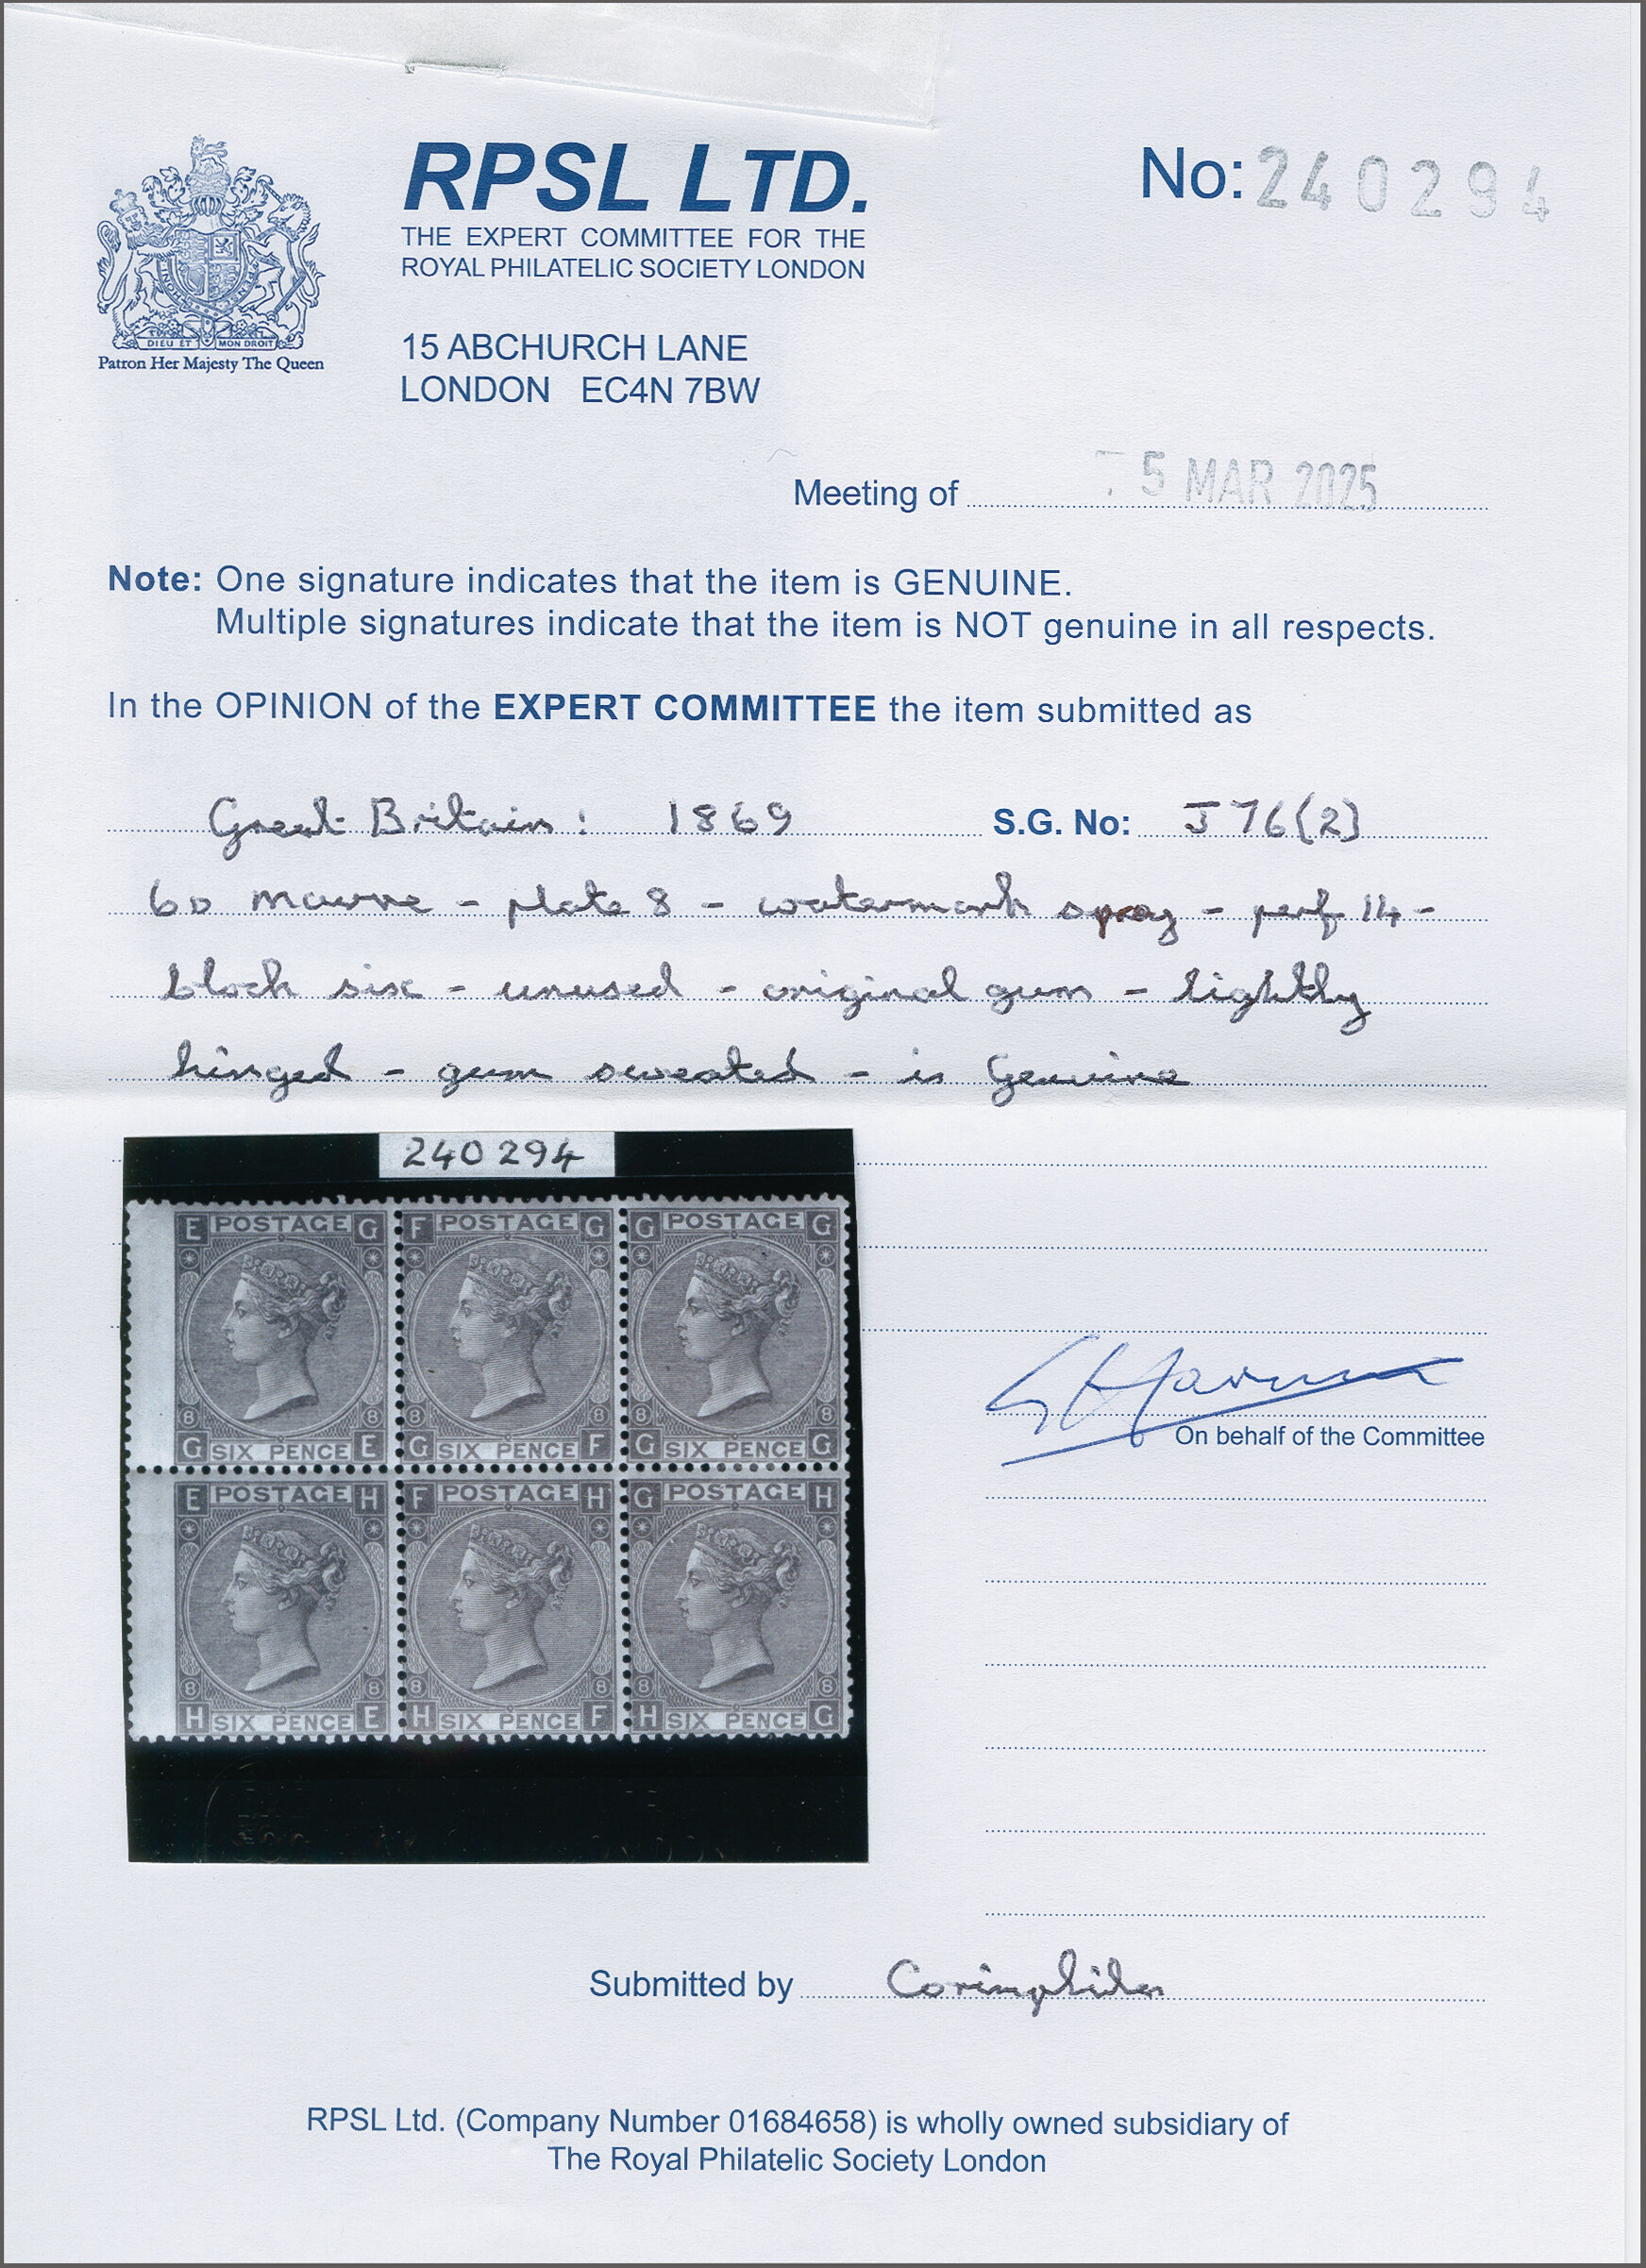 RPSL LTD.
THE EXPERT COMMITTEE FOR THE
ROYAL PHILATELIC SOCIETY LONDON
15 ABCHURCH LANE
LONDON EC4N 7BW
No: 240294
DIEU ET MON DROIT
Patron Her Majesty The Queen
Meeting of 5 MAR 2025
Note: One signature indicates that the item is GENUINE.
Multiple signatures indicate that the item is NOT genuine in all respects.
In the OPINION of the EXPERT COMMITTEE the item submitted as
Great Britain: 1869 S.G. No: J76(2)
6D mauve - plate 8 - watermark spray - perf 14 -
block six - unused - original gum - lightly
hinged - gum sweated - is Genuine
240294
E POSTAGE G F POSTAGE G G POSTAGE G
8 8 8 8 8 8
G SIX PENCE E G SIX PENCE F G SIX PENCE G
E POSTAGE H F POSTAGE H G POSTAGE H
8 8 8 8 8 8
H SIX PENCE E H SIX PENCE F H SIX PENCE G
On behalf of the Committee
Submitted by Corinphila
RPSL Ltd. (Company Number 01684658) is wholly owned subsidiary of
The Royal Philatelic Society London